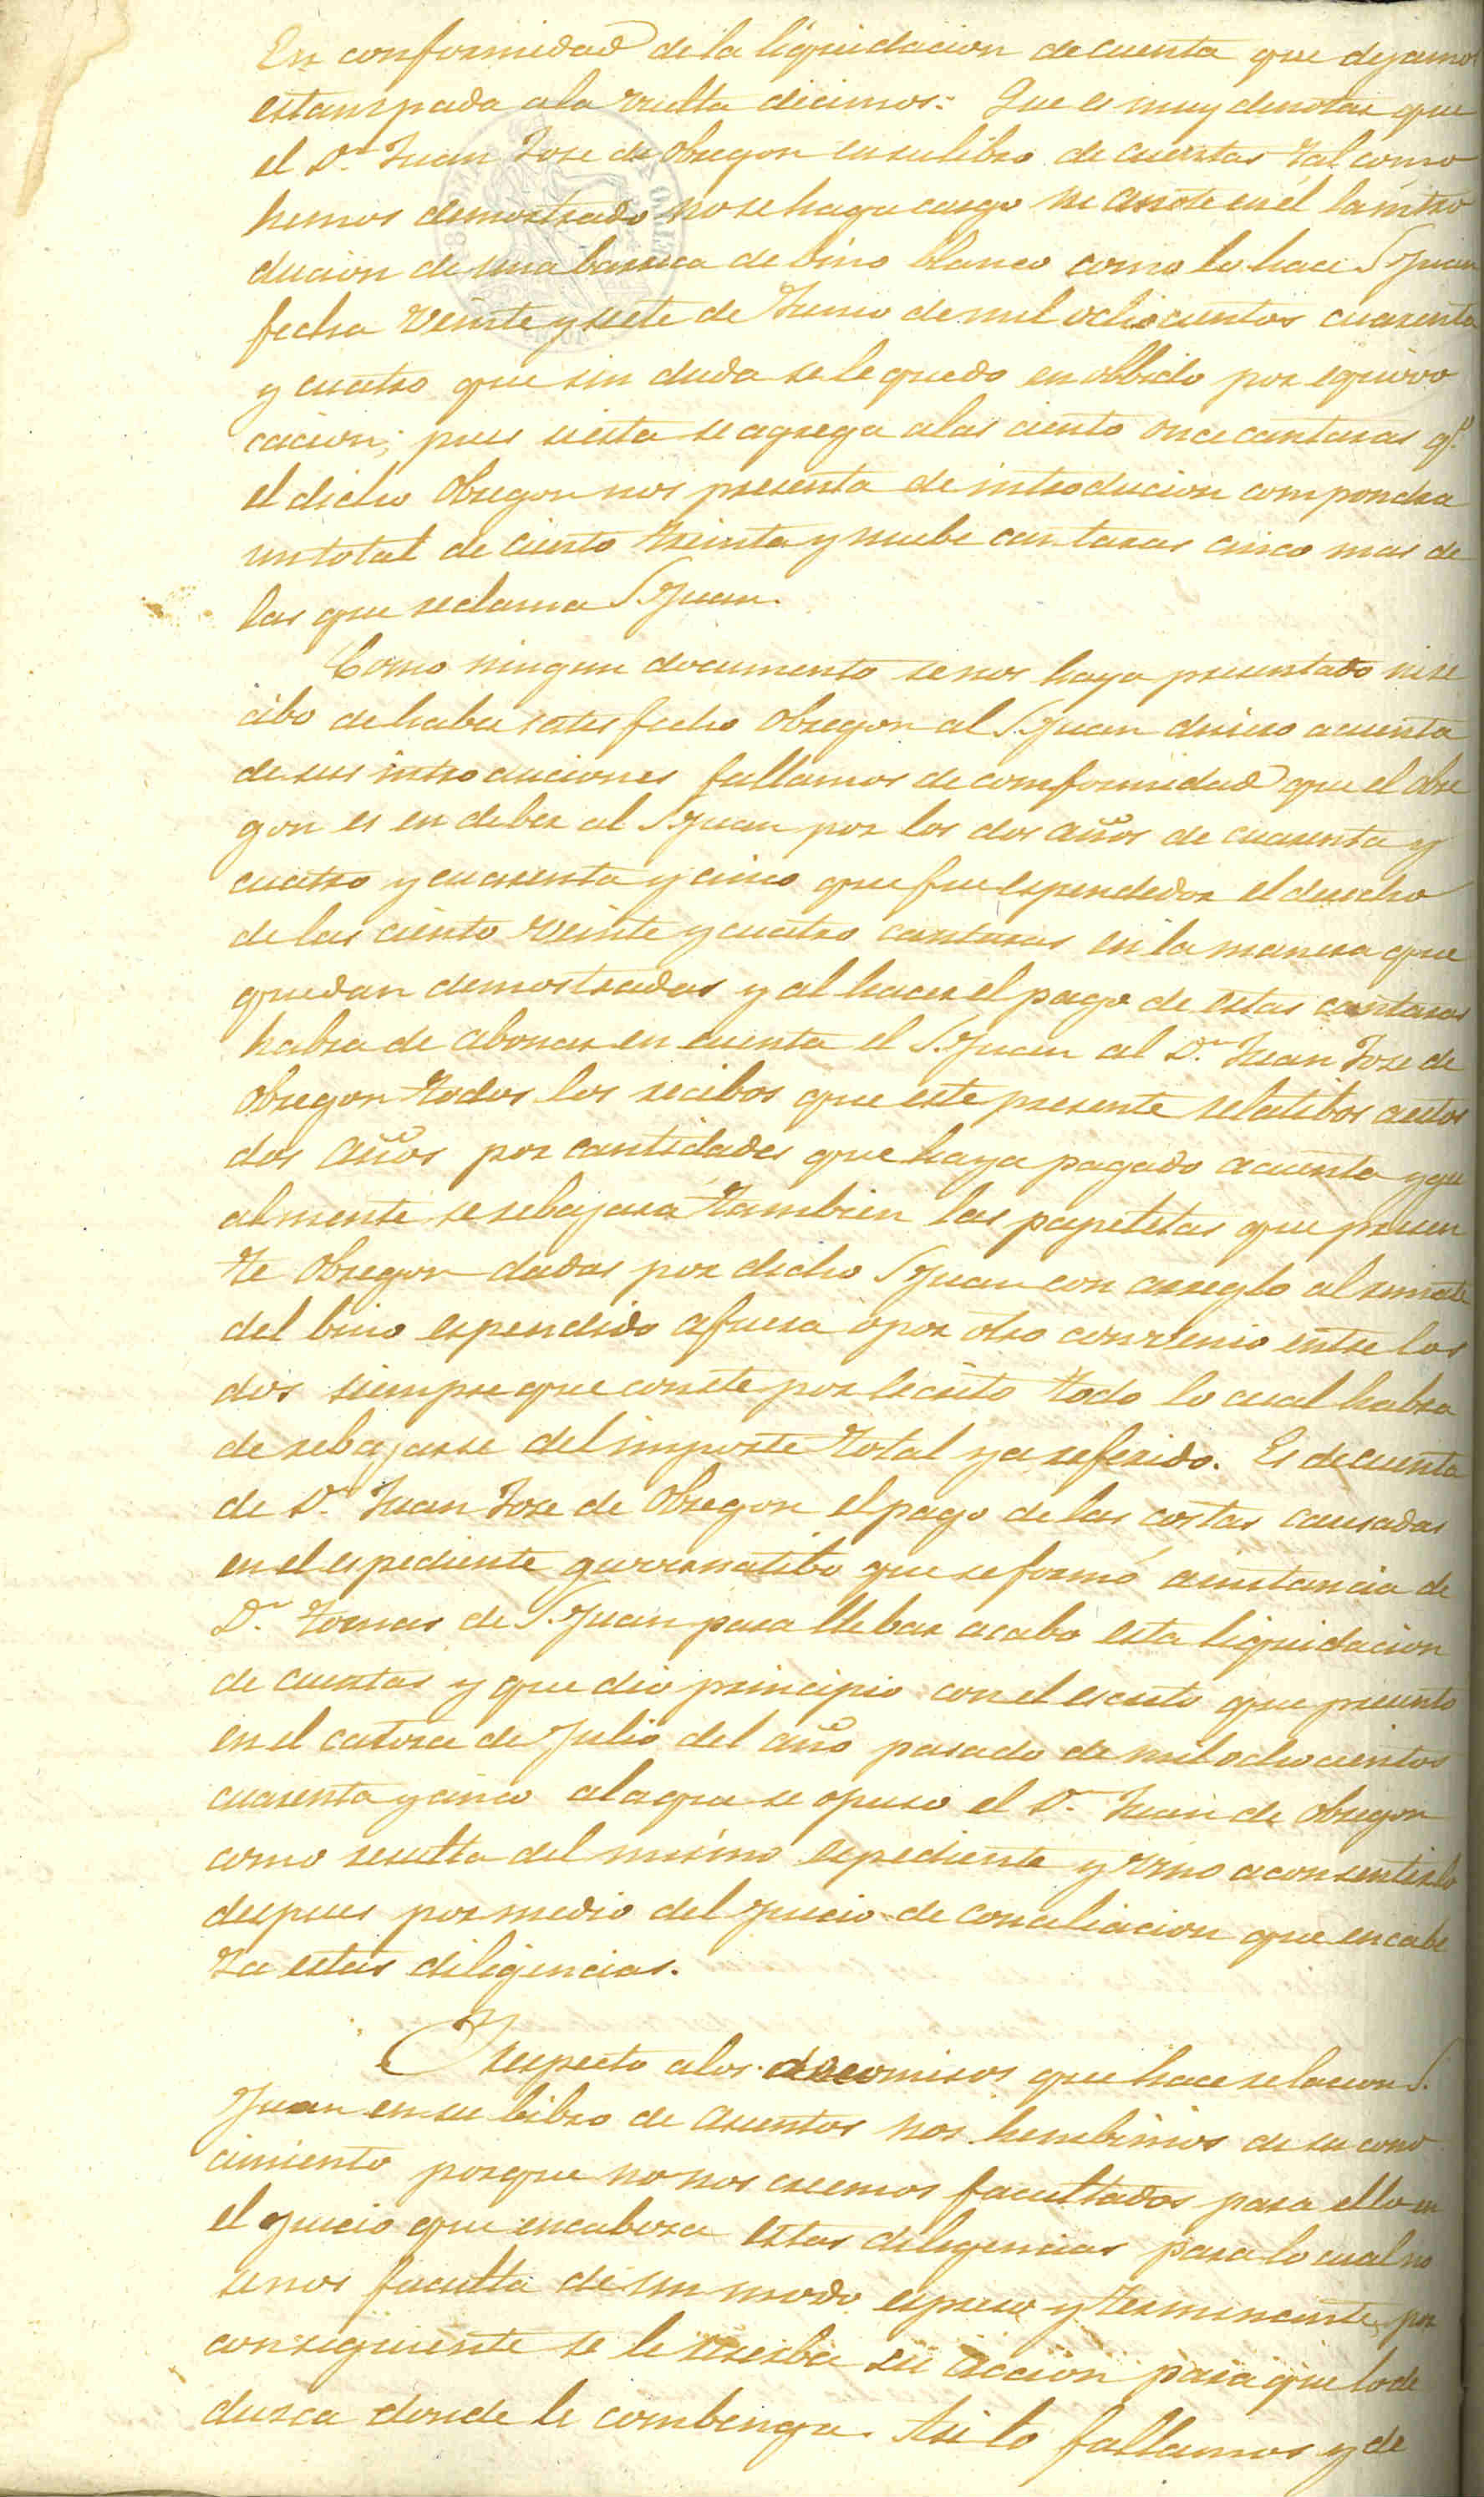 En conformidad de la liquidacion de cuenta que dejamos
estampada ala vuelta decimos: Que es muy denotar que
el Dn. Juan Jose de Obregon ensulibro de cuentas tal como
hemos demostrado nose haga cargo ni anote en él la intro
ducion de una barrica de bino blanco como lo hace S. Juan
fecha veinte y siete de Junio de mil ochocientos cuarenta
y cuatro que sin duda sele quedo en olbido por equivo
cacion; pues siesta se agrega alas ciento once cantaras qe.
el dicho Obregon nos presenta de introducion compondra
untotal de ciento treinta y nuebe cantaras cinco mas de
las que reclama S. Juan.
Como ningun documento senos haya presentado ni re
cibo de haber satisfecho Obregon al S. Juan dinero acuenta
desus introducciones fallamos de comformidad que el Obre
gon es en deber al S. Juan por los dos años de cuarenta y
cuatro y cuarenta y cinco que fue espendedor el derecho
de las ciento veinte y cuatro cantaras en la manera que
quedan demostradas y al hacer el pago de estas cantaras
habra de abonar en cuenta el S. Juan al Dn. Juan Jose de
Obregon todos los recibos que este presente relatibos aestos
dos años por cantidades que haya pagado acuenta ygu
almente se rebajara tambien las papeletas que presen
te Obregon dadas por dicho S. Juan con arreglo al remate
del bino espendido afuera ó por otro convenio entre los
dos siempre que conste por escrito todo lo cual habra
de rebajarse del importe total ya referido. Es de cuenta
de Dn. Juan Jose de Obregon el pago de las costas causadas
en el espediente guvernatibo que se formó ainstancia de
Dn. Tomas de S. Juan para llebar acabo esta liquidacion
de cuentas y que dio principio con el escrito que presento
en el catorce de Julio del año pasado de mil ochocientos
cuarenta y cinco alaque se opuso el Dn. Juan de Obregon
como resulta del mismo espediente y vino aconsentirlo
despues por medio del juicio de conciliacion que encabe
za estas diligencias.
Y respecto alos decomisos que hace relacion S.
Juan en su libro de asientos nos henibimos de su cono
cimiento porque no nos creemos facultados para ello en
el juicio que encabeza estas diligencias para lo cual no
senos faculta de un modo espreso y terminante, por
consiguiente se le reserba su accion para que lo de
dusca donde le combenga. Asi lo fallamos y de